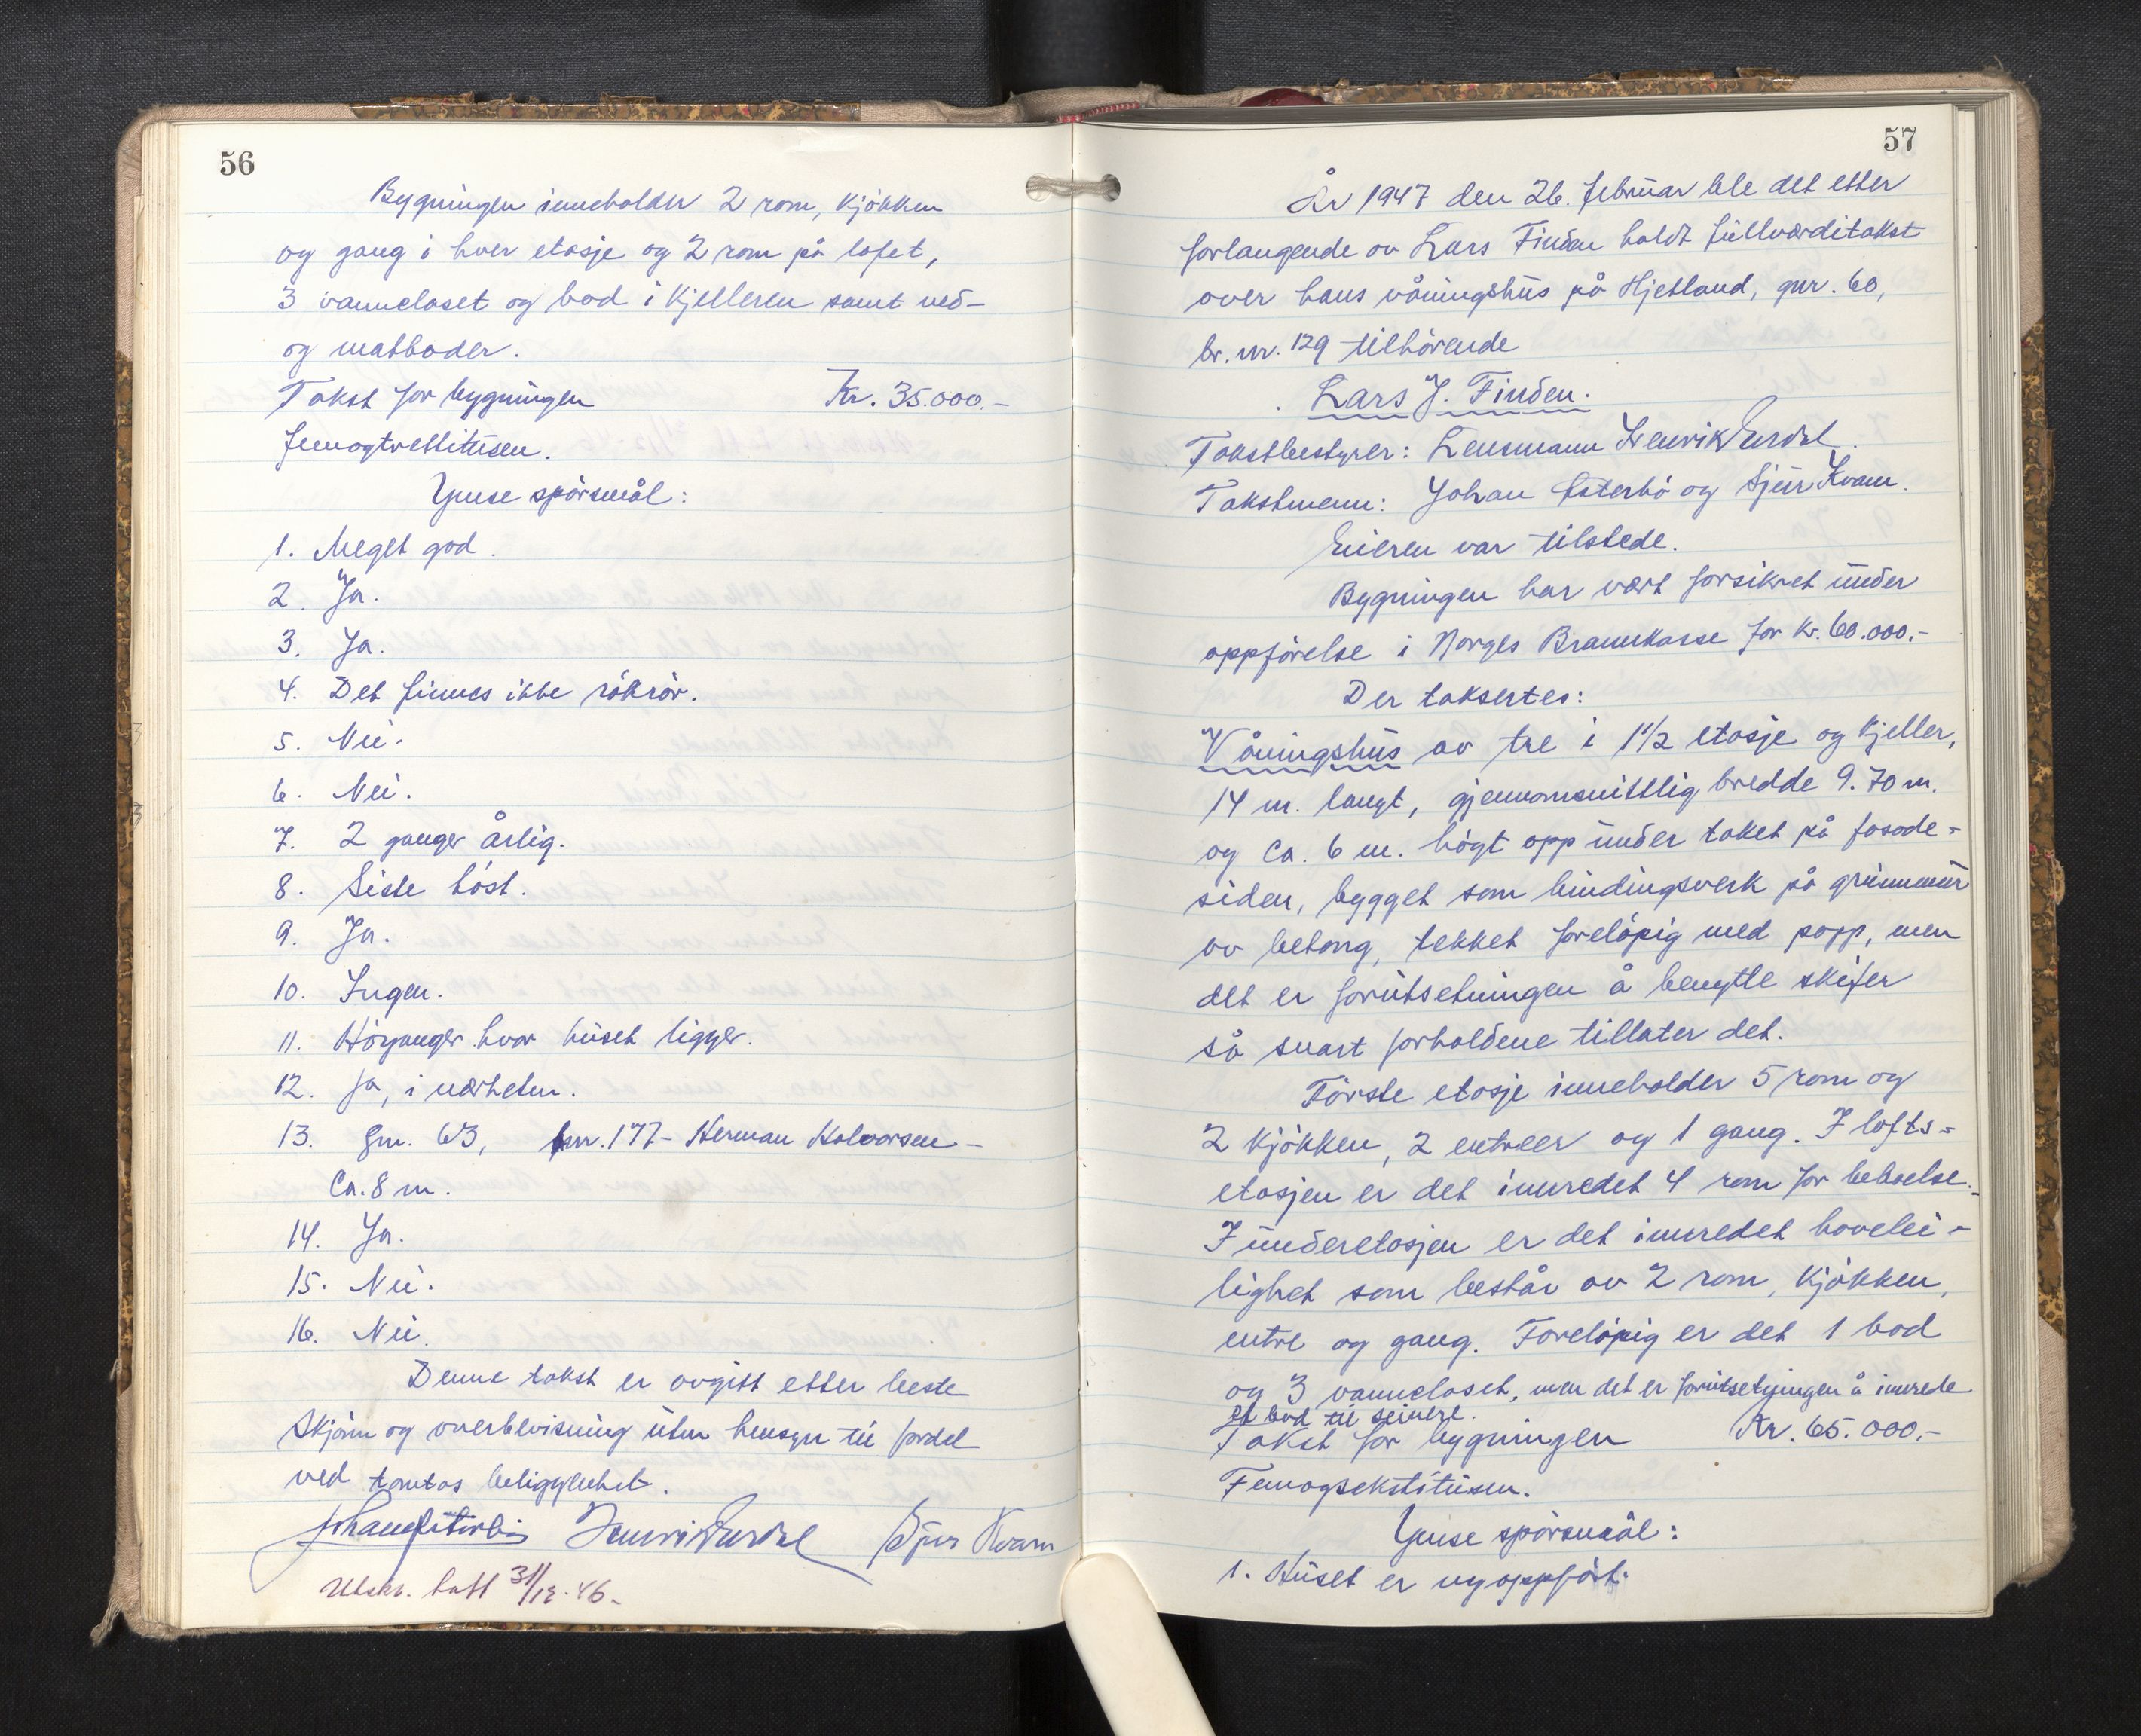 56
Bygningen inneholder 2 rom, kjøkken
og gang i hver etasje og 2 rom på loftet,
3 vanncloset og bod i kjelleren samt ved-
og matboder.
Takst for bygningen Kr. 35.000.-
femogtrettitusen.
Ymse spørsmål:
1. Meget god.
2. Ja.
3. Ja.
4. Det finnes ikke rökrör.
5. Nei.
6. Nei.
7. 2 ganger årlig.
8. Siste höst.
9. Ja.
10. Ingen.
11. Höyanger hvor huset ligger.
12. Ja, i nærheten.
13. gnr. 63, bnr. 177 - Herman Halvorsen -
Ca. 8 m.
14. Ja.
15. Nei.
16. Nei.
Denne takst er avgitt etter beste
skjönn og overbevisning uten hensyn til fordel
ved tomtas beliggenhet.
Johan Østerbö Henrik Eurdal Sjur Kvam
Utskr. hatt 31/12-46.
57
År 1947 den 26. februar ble det etter
forlangende av Lars Finden holdt fullverditakst
over hans våningshus på Hjetland, gnr. 60,
br. nr. 129 tilhörende
Lars J. Finden.
Takstbestyrer: Lensmann Henrik Eurdal.
Takstmenn: Johan Østerbö og Sjur Kvam.
Eieren var tilstede.
Bygningen har vært forsikret under
oppförelse i Norges Brannkasse for kr. 60.000.-
Der taksertes:
Våningshus av tre i 1 1/2 etasje og kjeller,
14 m. langt, gjennomsnittlig bredde 9.70 m.
og ca. 6 m. högt opp under taket på fasade-
siden, bygget som bindingsverk på grunnmur
av betong, tekket foreløpig med papp, men
det er forutsetningen å benytte skifer
så snart forholdene tillater det.
Første etasje inneholder 5 rom og
2 kjøkken, 2 entreer og 1 gang. I lofts-
etasjen er det innredet 4 rom for beboelse.
I underetasjen er det innredet hovelei-
lighet som består av 2 rom, kjøkken,
entre og gang. Foreløpig er det 1 bod
og 3 vanncloset, men det er forutsetningen å innrede
et bod til seinere.
Takst for bygningen Kr. 65.000.-
Femogsekstitusen.
Ymse spørsmål:
1. Huset er nyoppfört.